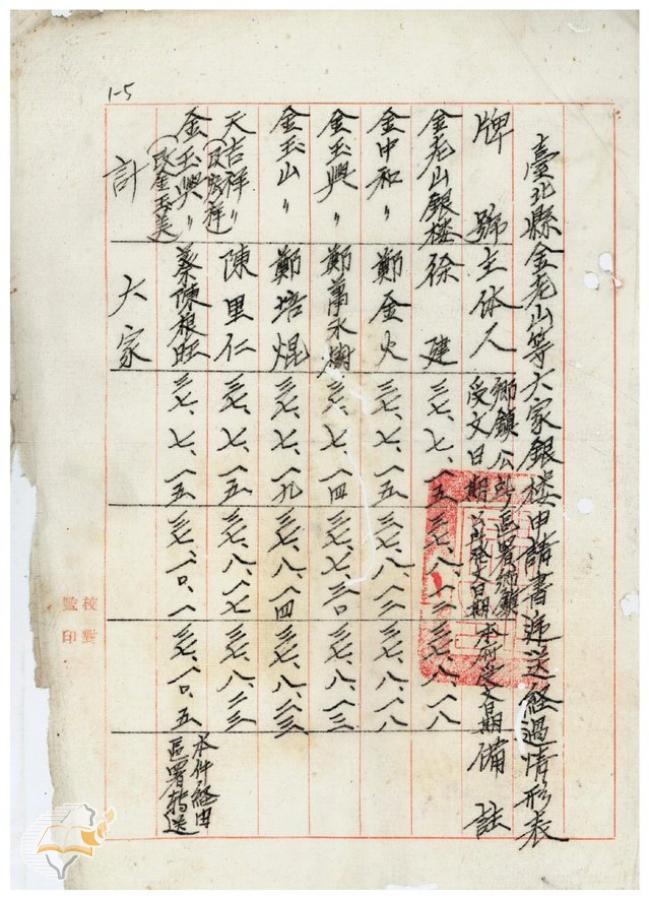 1-5
臺北縣金老山等大家銀楼申請書遞送經過情形表
牌號 主体人 鄉鎮公所受文日期 區署 發文日期 本府受文日期 備註
金老山銀楼 徐建 三七、七、一五 三七、八、一二 三七、八、一八
金中和〃 鄭金火 三七、七、一五 三七、八、一二 三七、八、一八
金玉興〃 鄭萬永樹 三六、七、一四 三七、七、三〇 三七、八、一三
金玉山〃 鄭培焜 三七、七、一九 三七、八、一四 三七、八、二三
天吉祥〃 陳里仁 三七、七、一五 三七、八、一七 三七、八、二三
金玉興〃(改金玉美) 蔡陳根旺 三七、七、一五 三七、一〇、一 三七、一〇、五 本件經由區署轉送
計 大家
校對
監印